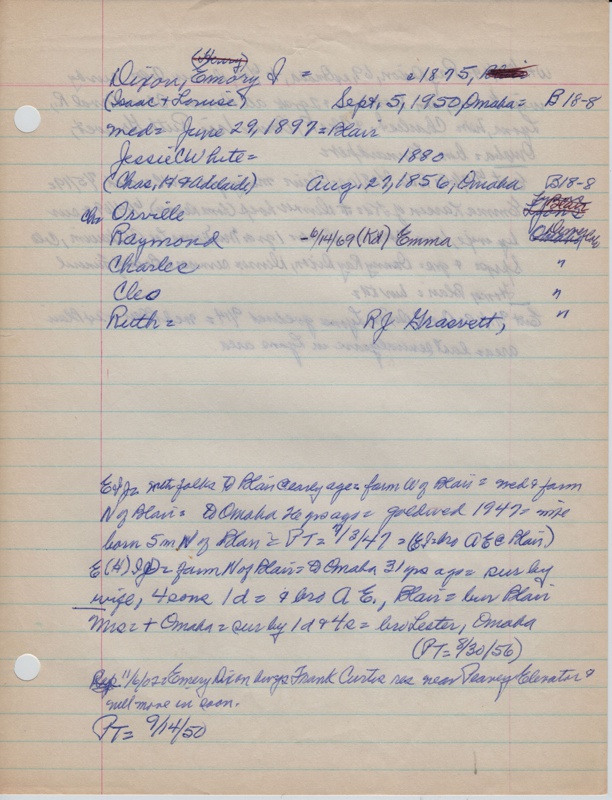 (Henry)
Dixon, Emory I = c1875, Blair
(Isaac & Louise) Sept. 5, 1950, Omaha = B 18-8
med = June 29, 1897 = Blair
Jessie C White = 1880
(Chas, H & Adelaide) Aug. 27, 1856, Omaha B18-8
chn Orville Blair Lyons
Raymond -6/14/69 (Kd) Emma Omaha
Charles "
Cleo "
Ruth = R.J. Grasvett, "
E I J = with folks to Blair C early age = farm W of Blair = med & farm
N of Blair = to Omaha 26 yrs ago = goldwed 1947 = mre
born 5 m N of Blair = PT = 7/3/47 = (EI = bro A E C Blair)
E (H) I D = farm N of Blair = to Omaha 31 yrs ago = sur by
wife, 4 sons 1 d = & bro A E., Blair = bur Blair
Mrs = + Omaha = sur by 1 d & 4 s = bro Lester, Omaha
(PT = 8/30/56)
Rep 11/6/02 = Emery Dixon buys Frank Curtis res near Peavey Elevator &
will move in soon.
PT = 9/14/50